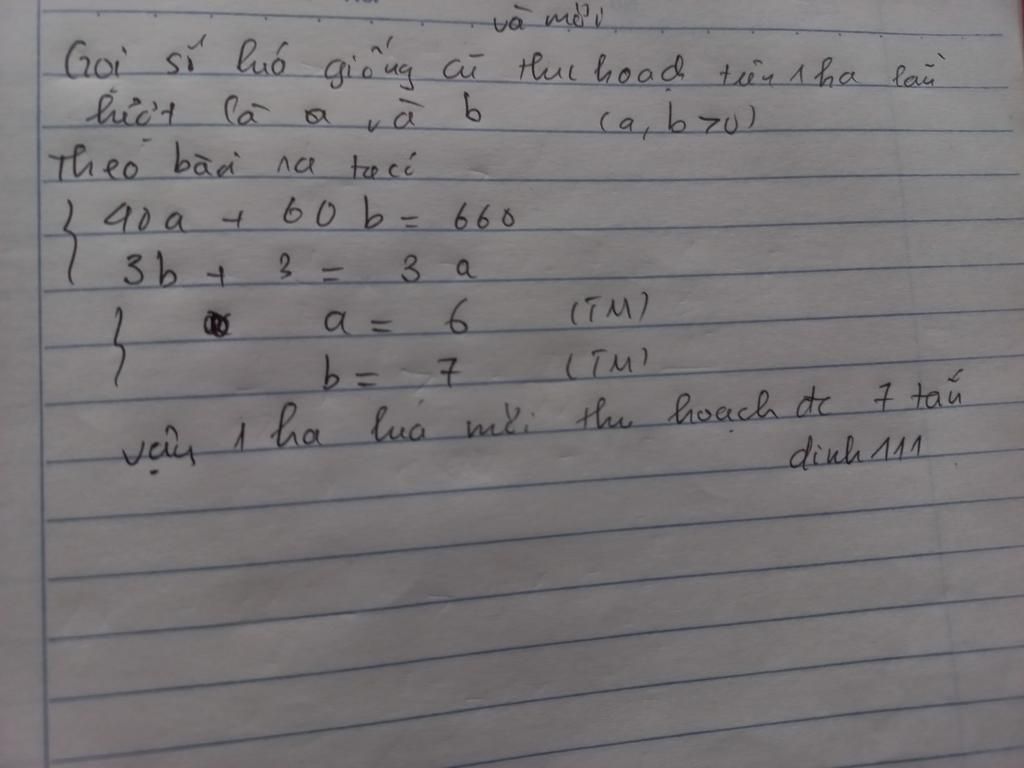 và mới
Gọi số luó giống cũ thu hoạch trên 1 ha lần
lượt là a và b (a, b > 0)
Theo bài ra ta có
40a + 60b = 660
3b + 3 = 3a
a = 6 (TM)
b = 7 (TM)
vậy 1 ha luá mới thu hoạch đc 7 tấn
dinh111